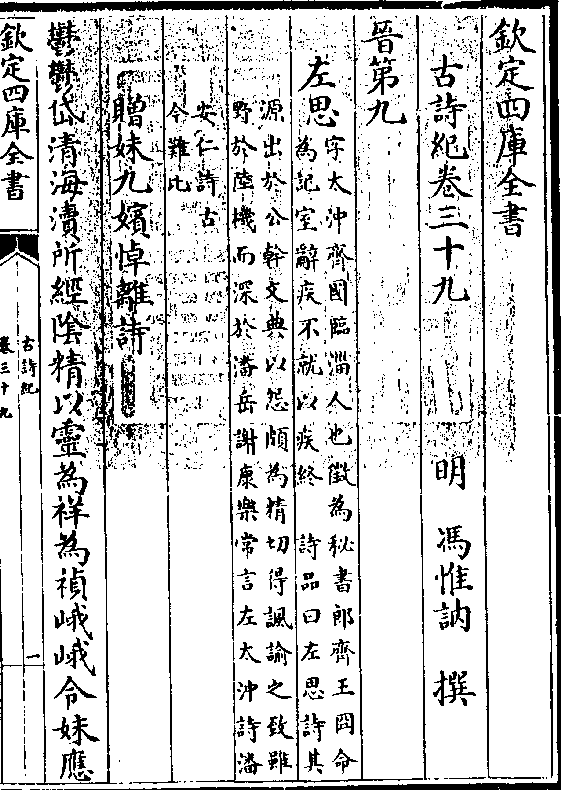 欽定四庫全書
古詩紀卷三十九
明　馮惟訥　撰
晉第九
左思
字太沖齊國臨淄人也徵為秘書郎齊王冏命
為記室辭疾不就以疾終　詩品曰左思詩其
源出於公幹文典以怨頗為精切得諷諭之致雖
野於陸機而深於潘岳謝康樂常言左太沖詩潘
安仁詩古
今難比
贈妹九嬪悼離詩
鬱鬱岱清海瀆所經隂精以靈為祥為禎峨峨令妹應
欽定四庫全書
古詩紀
卷三十九
一